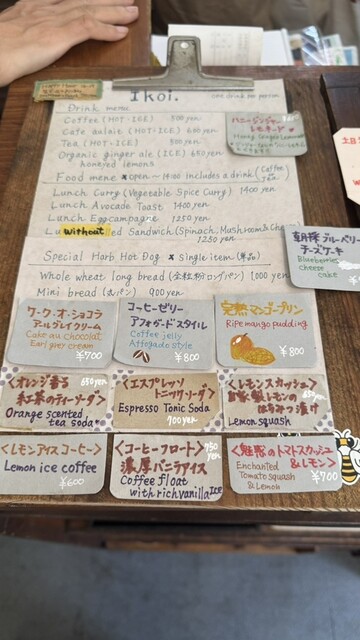 Ikoi.
one drink per person
Drink menu
Coffee (HOT・ICE) 500 yen
Cafe aulait (HOT・ICE) 600 yen
Tea (HOT・ICE) 500 yen
Organic ginger ale (ICE) 650 yen
Honeyed lemons
Food menu × open ~ 14:00 includes a drink (Coffee
Lunch Curry (Vegetable Spice Curry) 1400 yen
Lunch Avocado Toast 1400 yen
Lunch Eggcampagne 1250 yen
without
ed Sandwich (Spinach, Mushroom &
1250 yen
Special Harb Hot Dog × Single item (単品)
Whole wheat long bread (全粒粉ロングパン) 1000 yen
Mini bread (丸パン) 900 yen
ハニージンジャー
レモネード
Honey Ginger Lemonade
朝採ブルーベリー
チーズケーキ
Blueberries
cheese
cake
ケーク・オ・ショコラ
アールグレイクリーム
Cake au chocolat
Earl grey cream
¥700
コーヒーゼリー
アフォガードスタイル
Coffee jelly
Affogado style
¥800
完熟マンゴープリン
Ripe mango pudding
¥800
<オレンジ香る 650yen
紅茶のティーソーダ>
Orange scented
tea soda
<エスプレッソ
トニックソーダ>
Espresso Tonic Soda
700 yen
<レモンスカッシュ> 650yen
自家製レモンの
はちみつ漬け
Lemon squash
<レモンアイスコーヒー>
Lemon ice coffee
¥600
<コーヒーフロート> 750 yen
濃厚バニラアイス
Coffee float
with rich vanilla Ice
<魅惑のトマトスカッシュ
&レモン>
Enchanted
Tomato squash
& Lemon
¥700